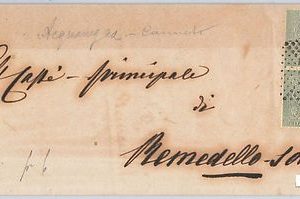 Acquanegra - Canneto
Caffè - principale
di
Remedello - so